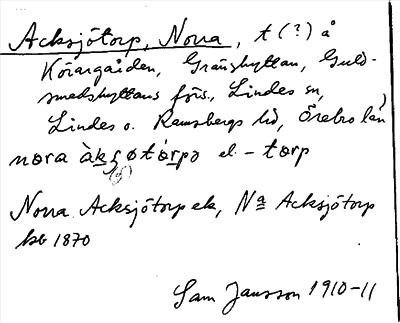 Acksjötorp, Norra, t (?) å
Körargården, Gränshyttan, Guld-
smedshyttans förs., Lindes sn,
Lindes o. Ramsbergs hd, Örebro län
nora àksøtórpə el. -tørp
(s)
Norra Acksjötorp ek, Na Acksjötorp
kb 1870
Sam Jansson 1910-11